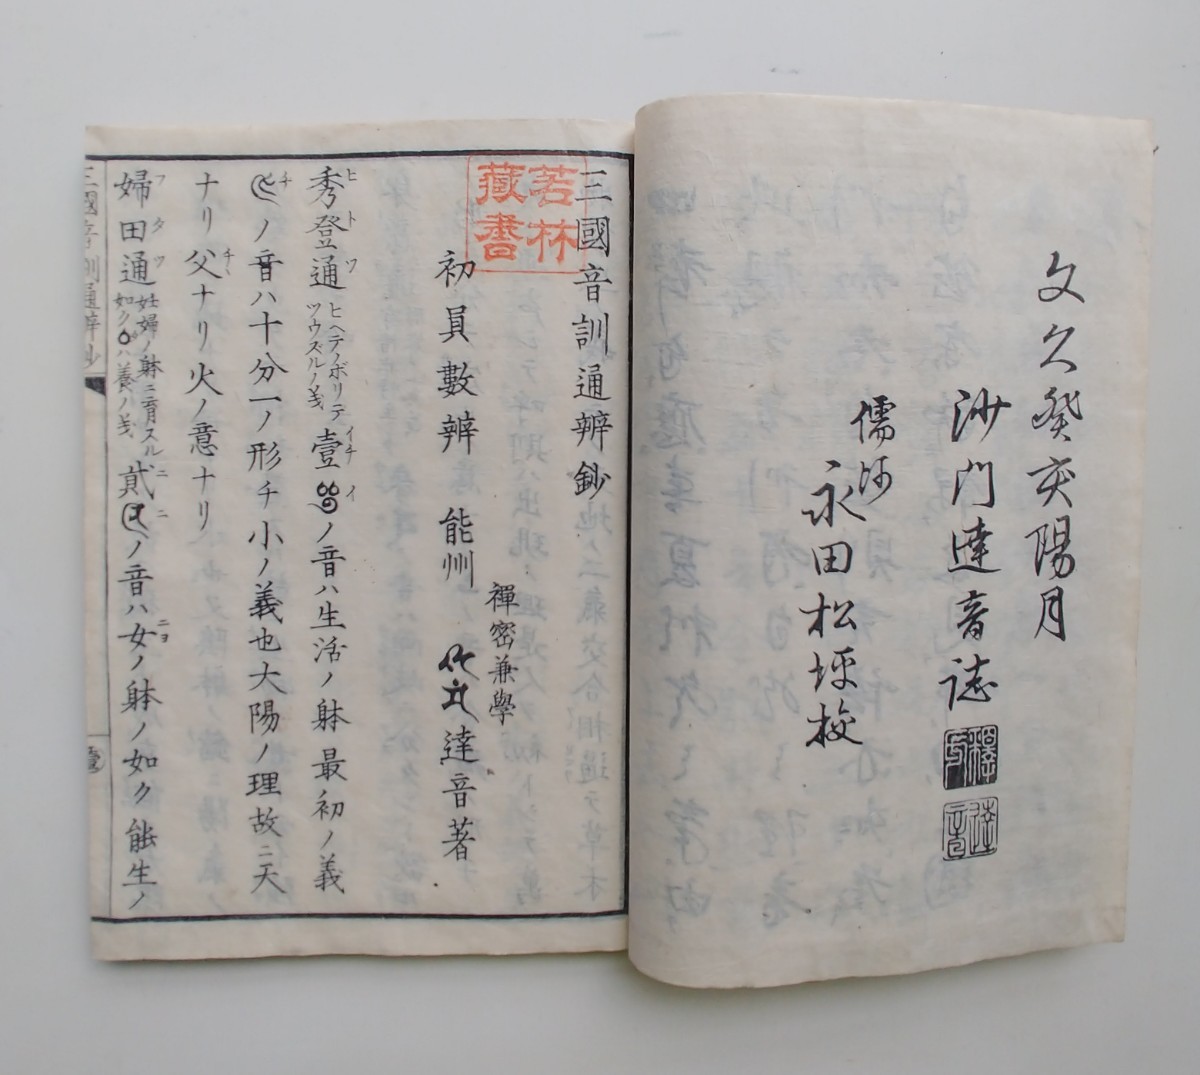 文久癸亥陽月
沙門達音誌
釋
達音
儒
永田松坪校
三國音訓通辨鈔
若林
藏書
禪密兼學
初員數辨 能州 達音著
秀登通ヒヘテノボリテツウズルノ義壹ノ音ハ生活ノ躰最初ノ義
ヒトツ イチ イ
ノ音ハ十分一ノ形チ小ノ義也大陽ノ理故ニ天
チ
ナリ父ナリ火ノ意ナリ
チヽ
婦田通妊婦ノ躰ニ育スル如クハ養ノ義貳ノ音ハ女ノ躰ノ如ク能生ノ
フタツ ニ ニ ニヨ
三國音訓通辨鈔
壹